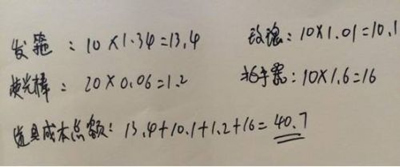 发箍：10×1.34=13.4 玫瑰：10×1.01=10.1
荧光棒：20×0.06=1.2 拍手器：10×1.6=16
道具成本总额：13.4+10.1+1.2+16=40.7